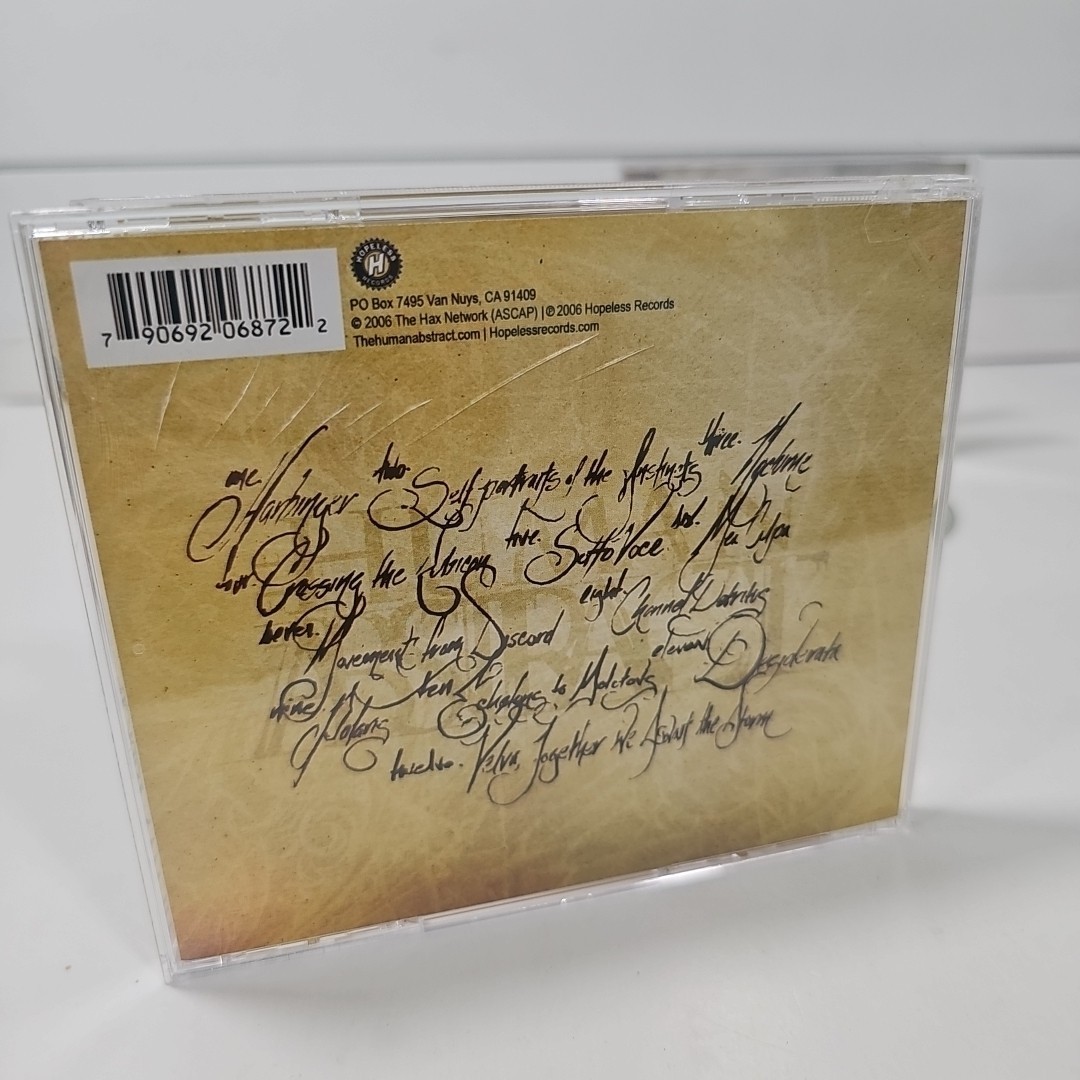 HOPELESS
H
RECORDS
PO Box 7495 Van Nuys, CA 91409
© 2006 The Hax Network (ASCAP) | ℗ 2006 Hopeless Records
Thehumanabstract.com | Hopelessrecords.com
7 90692 06872 2
one. Harbinger two. Self portraits of the Instincts three. Nocturne
four. Crossing the Rubicon five. Sotto Voce six. Mea Culpa
seven. Movement from Discord eight. Channel Detritus
nine. Polaris ten. Echelons to Molotovs eleven. Desiderata
twelve. Vela, Together We Await the Storm